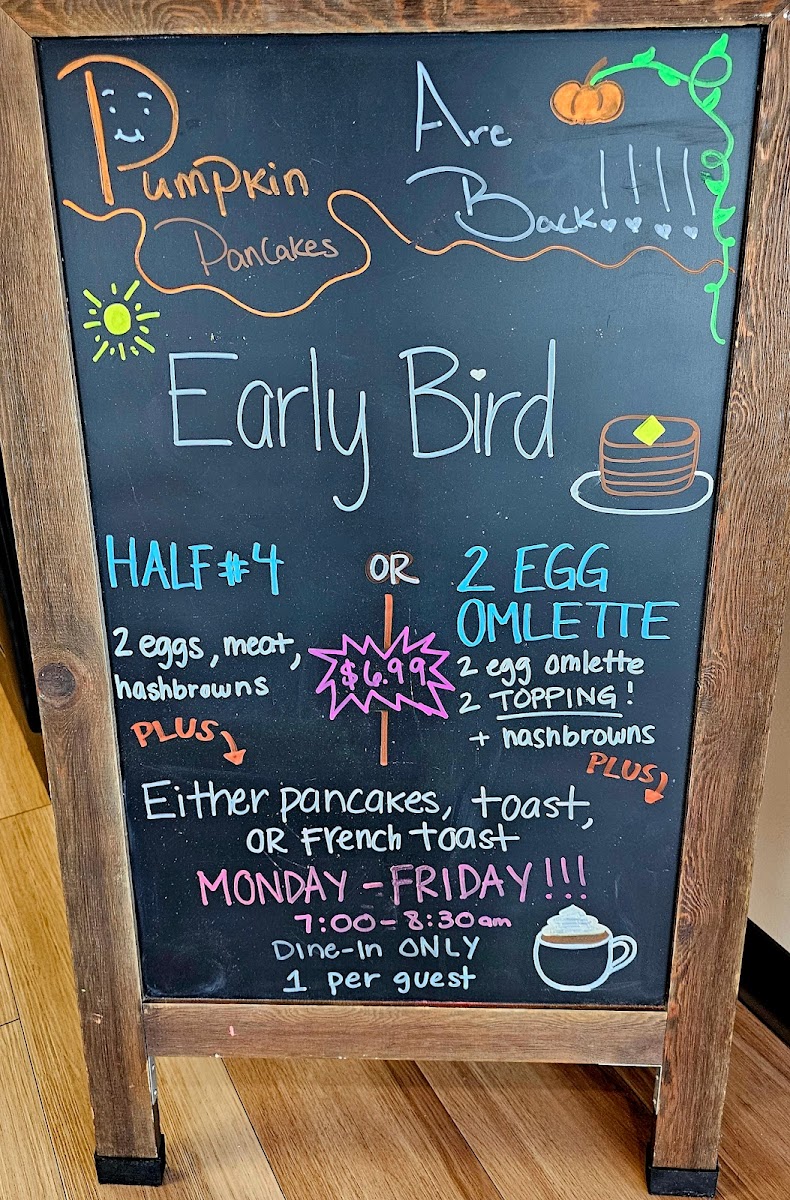 Pumpkin
Pancakes
Are
Back!!!!
Early Bird
HALF #4
2 eggs, meat,
hashbrowns
PLUS
OR
$6.99
2 EGG
OMLETTE
2 egg omlette
2 TOPPING!
+ hashbrowns
PLUS
Either pancakes, toast,
OR French toast
MONDAY - FRIDAY!!!
7:00 - 8:30am
Dine-In ONLY
1 per guest